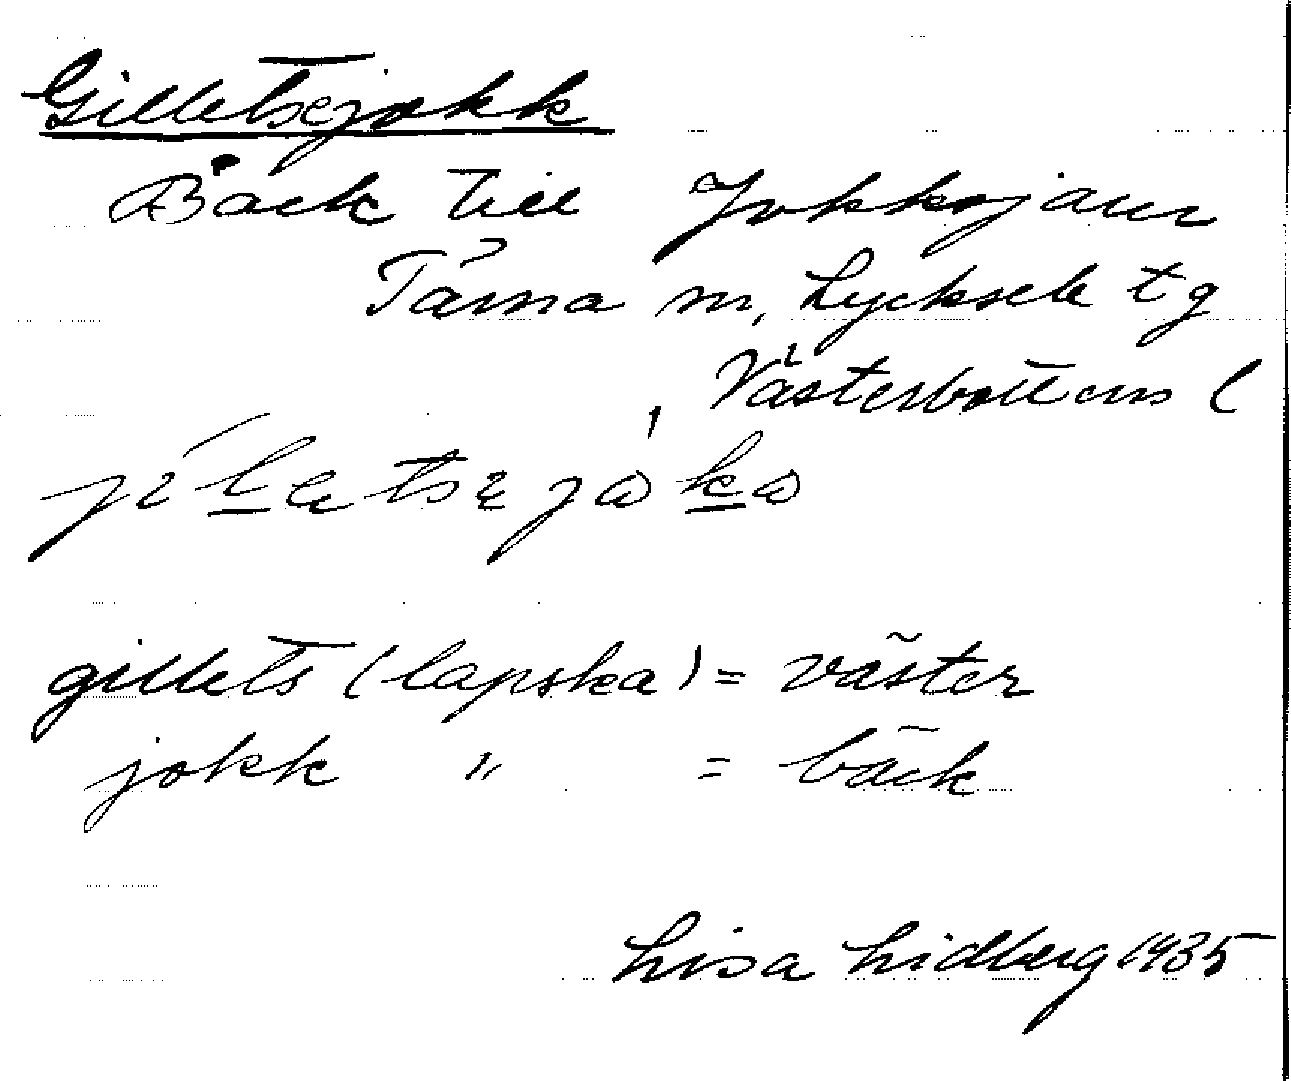 Gilletsejokk
Bäck till Jokksjaur
Tärna sn, Lycksele tg
Västerbottens l
gillets (lapska) = väster
jokk " = bäck
Lisa Lidberg 1935